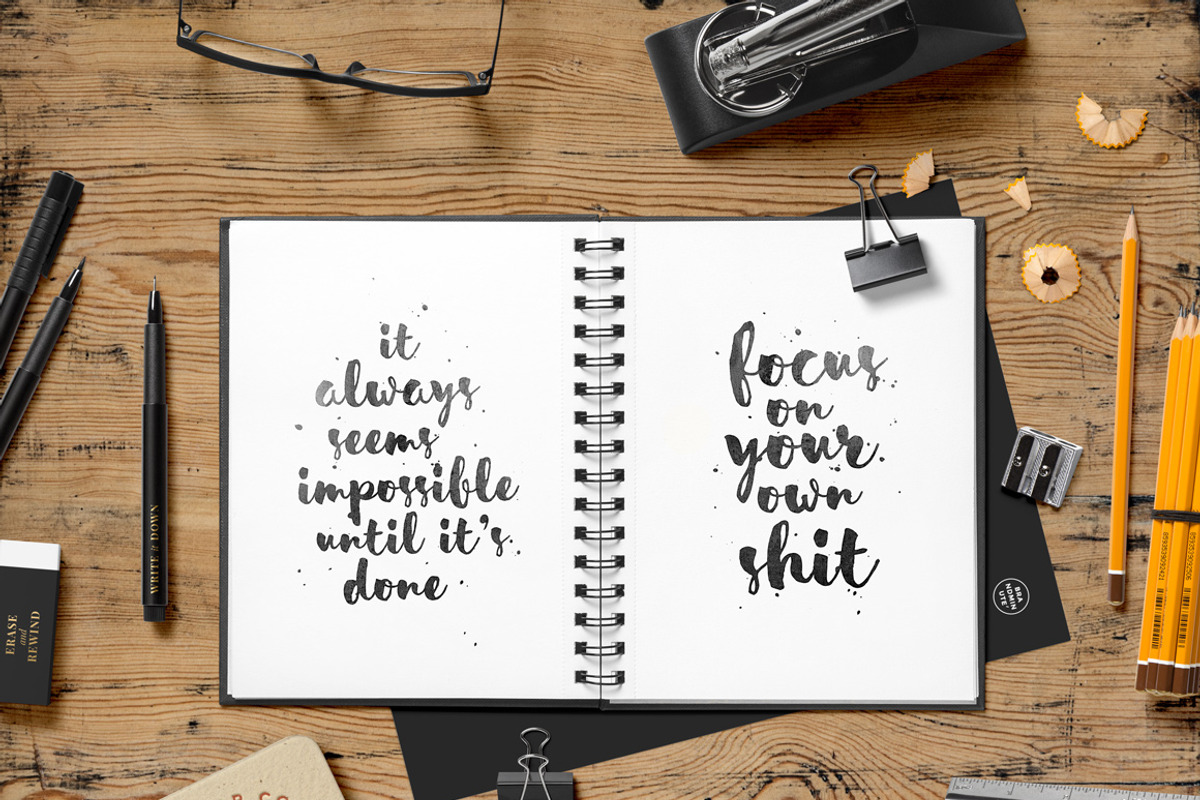 it
always
seems
impossible
until it's
done
focus
on
your
own
shit
WRITE it DOWN
ERASE
and
REWIND
BRA
NDMIN
UTE